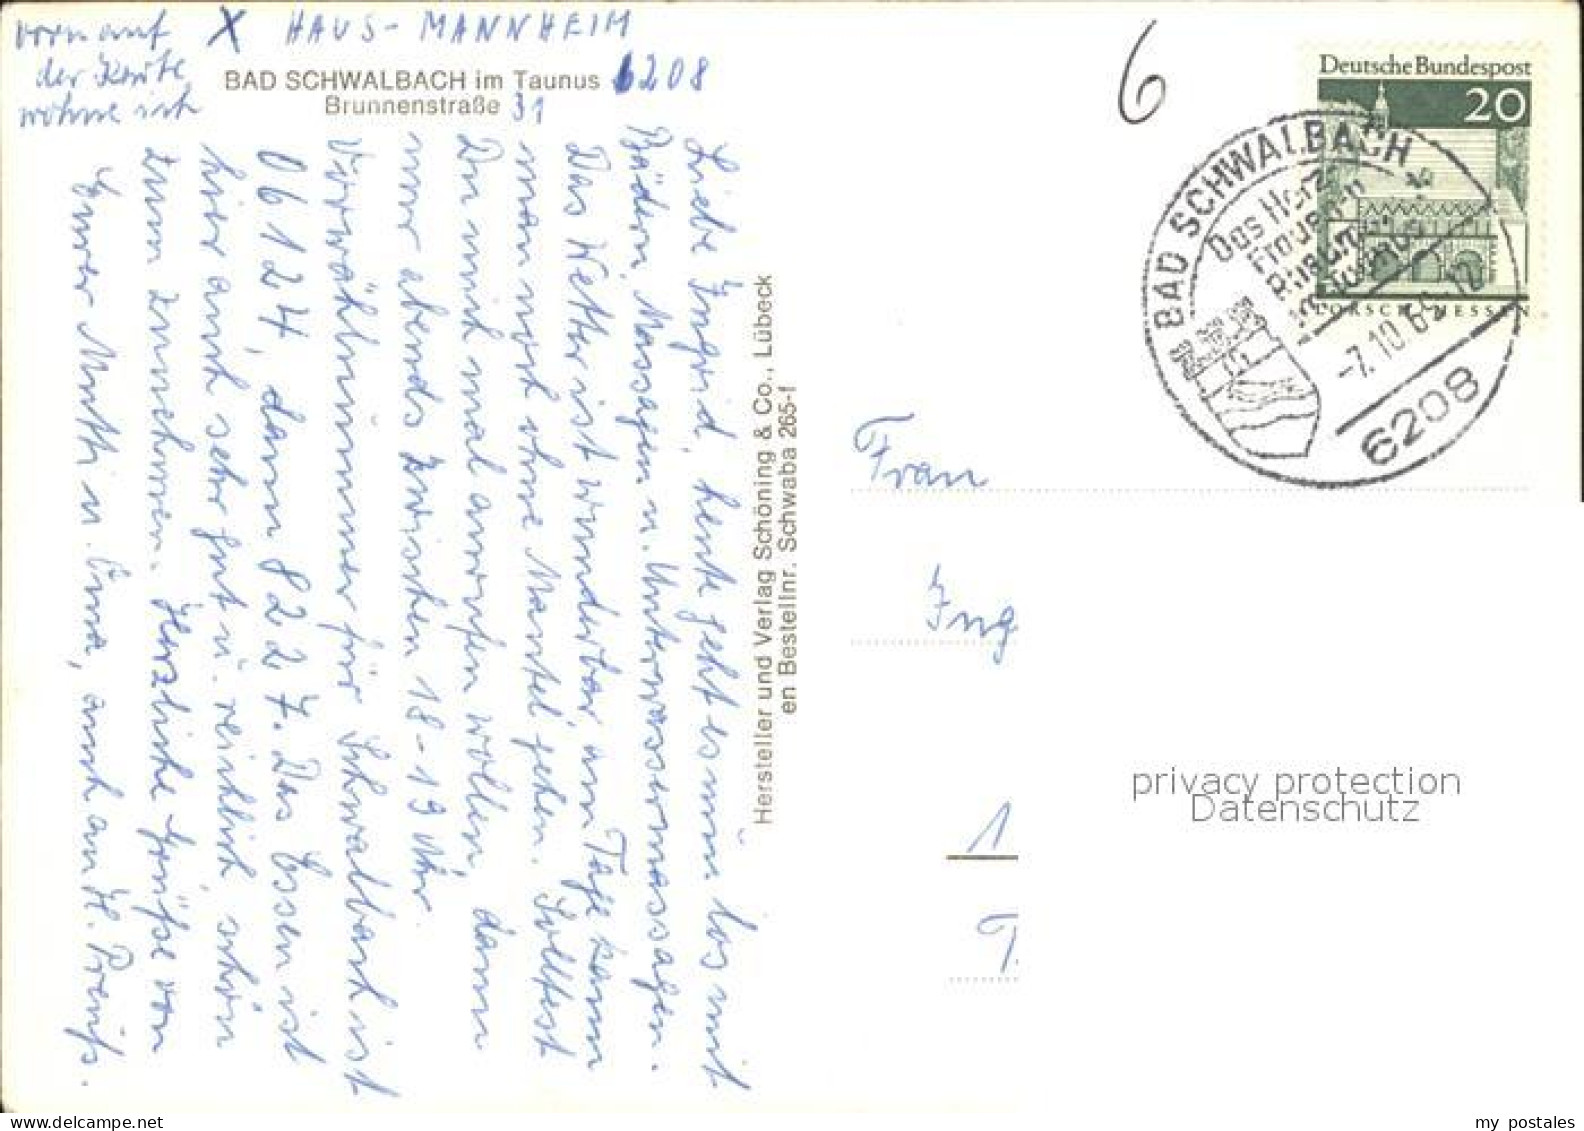 vorn auf X HAUS-MANNHEIM
der Karte
wohne ich
BAD SCHWALBACH im Taunus 6208
Brunnenstraße 31
Liebe Ingrid, heute geht es nun los mit
Bädern, Massagen u. Unterwassermassagen.
Das Wetter ist wunderbar, am Tage kann
man noch ohne Mantel gehen. Solltest
Du mich mal anrufen wollen, dann
nur abends zwischen 18-19 Uhr.
Vorwählnummer für Schwalbach ist
06124, dann 8227. Das Essen ist
hier auch sehr gut u. reichlich, schön
zum zunehmen. Herzliche Grüße von
Eurer Mutti u. Oma, auch an H. Preuß.
Hersteller und Verlag Schöning & Co., Lübeck
en Bestellnr. Schwaba 265-f
6
Deutsche Bundespost
20
LORSCH/HESSEN
BAD SCHWALBACH
Das Herz-
Frauen-
Rheuma-
-7.10.69-12
6208
Frau
Ing
1
T.
privacy protection
Datenschutz
my postales